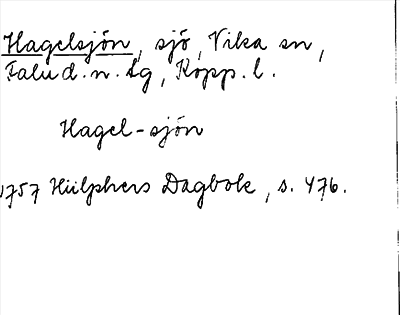 Hagelsjön, sjö, Vika sn,
Falu d. n. lg, Kopp. l.
Hagel-sjön
1757 Hülphers Dagbok, s. 476.